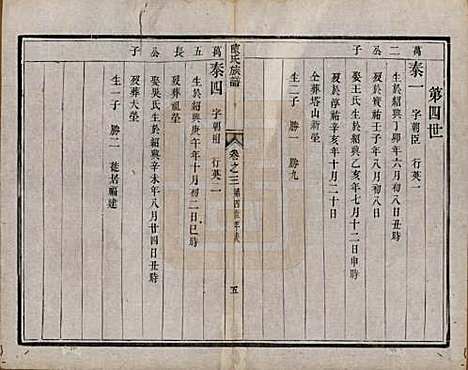 第四世
萬二公子
泰一 字朝臣 行英一
生於紹興丁卯年六月初一日丑時
歿於寶祐壬子年八月初六日
娶王氏生於紹興乙亥年七月十二日申時
歿於淳祐辛亥年十月二十日
仝葬塔山新塋
生二子 勝一 勝九
氏族譜
卷之三 第四世年表
五
萬五長公子
泰四 字朝 行英二
生於紹興庚午年十月初二日巳時
歿葬祖塋
娶吳氏生於紹興辛未年八月廿四日丑時
歿葬大塋
生一子 勝二 徙居福建